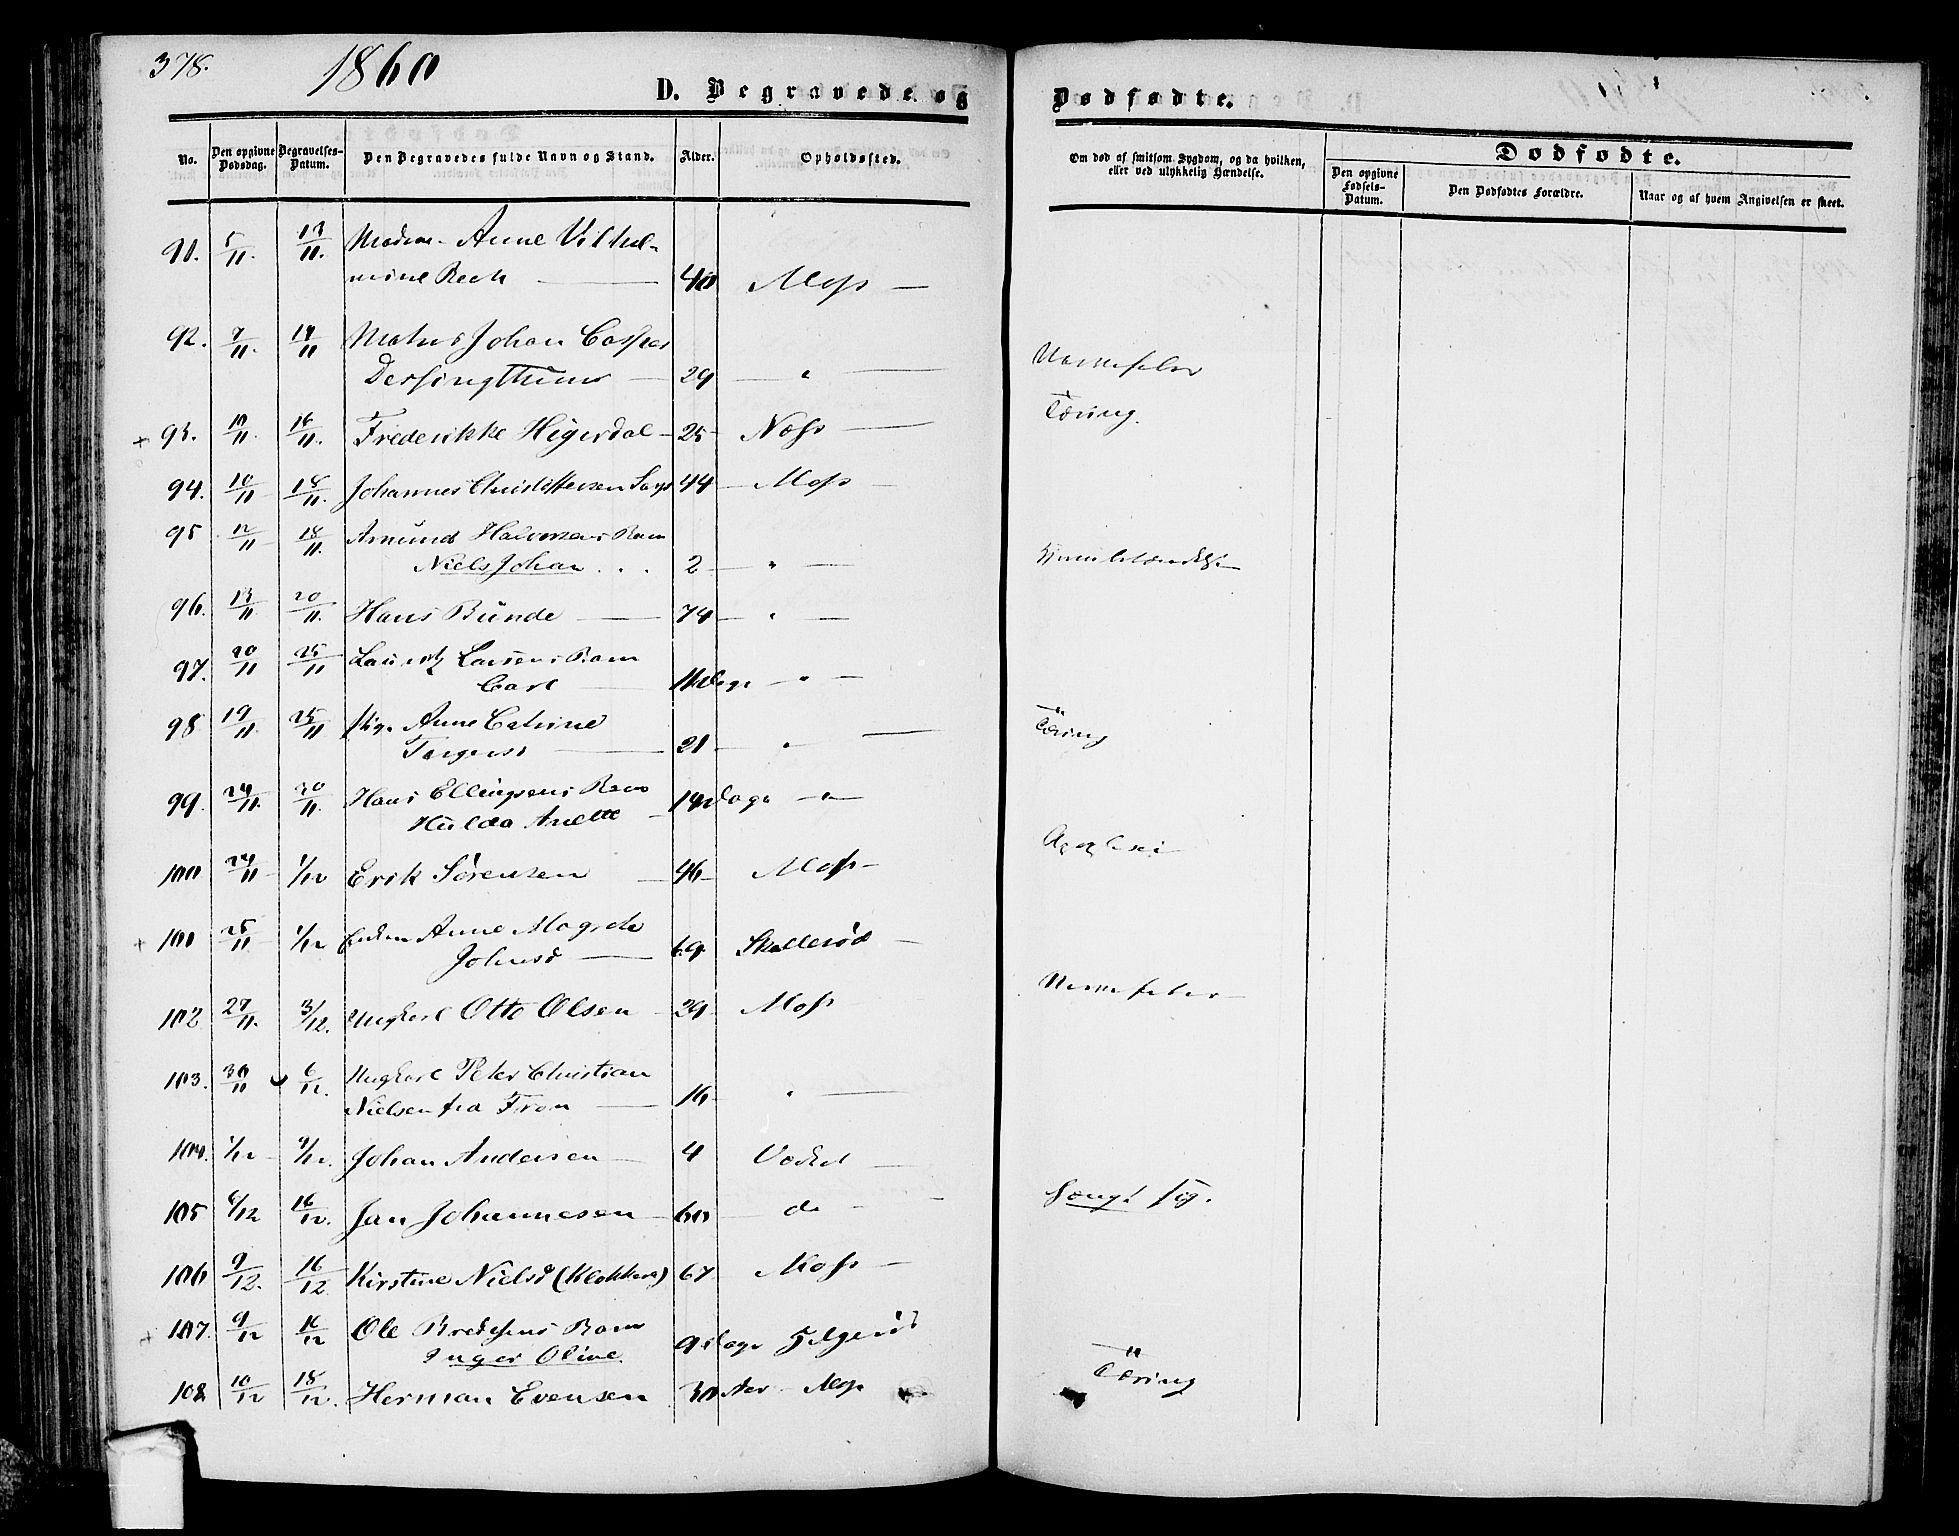 378.
1860
D. Begravede og
Dødfødte.
No. Den opgivne Dødsdag. Begravelses-Datum. Den Begravedes fulde Navn og Stand. Alder. Opholdssted.
Om død af smitsom Sygdom, og da hvilken, eller ved ulykkelig Hændelse.
Dødfødte.
Den opgivne Fødsels-Datum. Den Dødfødtes Forældre. Naar og af hvem Angivelsen er skeet.
91. 5/11. 13/11. Madm. Anne Vilhel-
mine Reck 40 Moss
92. 7/11. 14/11 Johan Casper
29 "
Nervefeber
93. 10/11. 16/11. Frederikke Higerdal 25 Næss
Tæring.
94. 10/11 18/11. Johannes Christoffersen 44 Moss
95 12/11 18/11. Amund Halvorsens Barn
Niels Johan 2 "
96. 13/11 20/11. Hans Bünde 74 "
97. 20/11 25/11 Lauritz Larsens Barn
Carl 11 Dage "
98 19/11 25/11 Pige Anne Catrine
21 "
Tæring
99. 24/11. 30/11. Hans Ellingsens Barn
Hulda Anette 14 Dage "
100 24/11 1/12 Erik Sørensen 46 Moss
Apoplexi
101 25/11 1/12 Enken Anne Magrete
Johnsd 69 Skallerød
102 27/11. 3/12. Ungkarl Otto Olsen 29 Moss
Nervefeber
103. 30/11 6/12. Ungkarl Peter Christian
Nielsen fra Fron 16 "
104. 1/12 9/12. Johan Andersen 4 Vodkel
105 6/12 16/12. Jan Johannesen 60 do
106 9/12. 16/12 Kirstine Nielsd (Klokkers) 67 Moss
107. 9/12 16/12 Ole Bredesens Barn
Inger Oline 9 Dage Helgerød
108 10/12 18/12. Herman Evensen 30 Aar Moss
Tæring